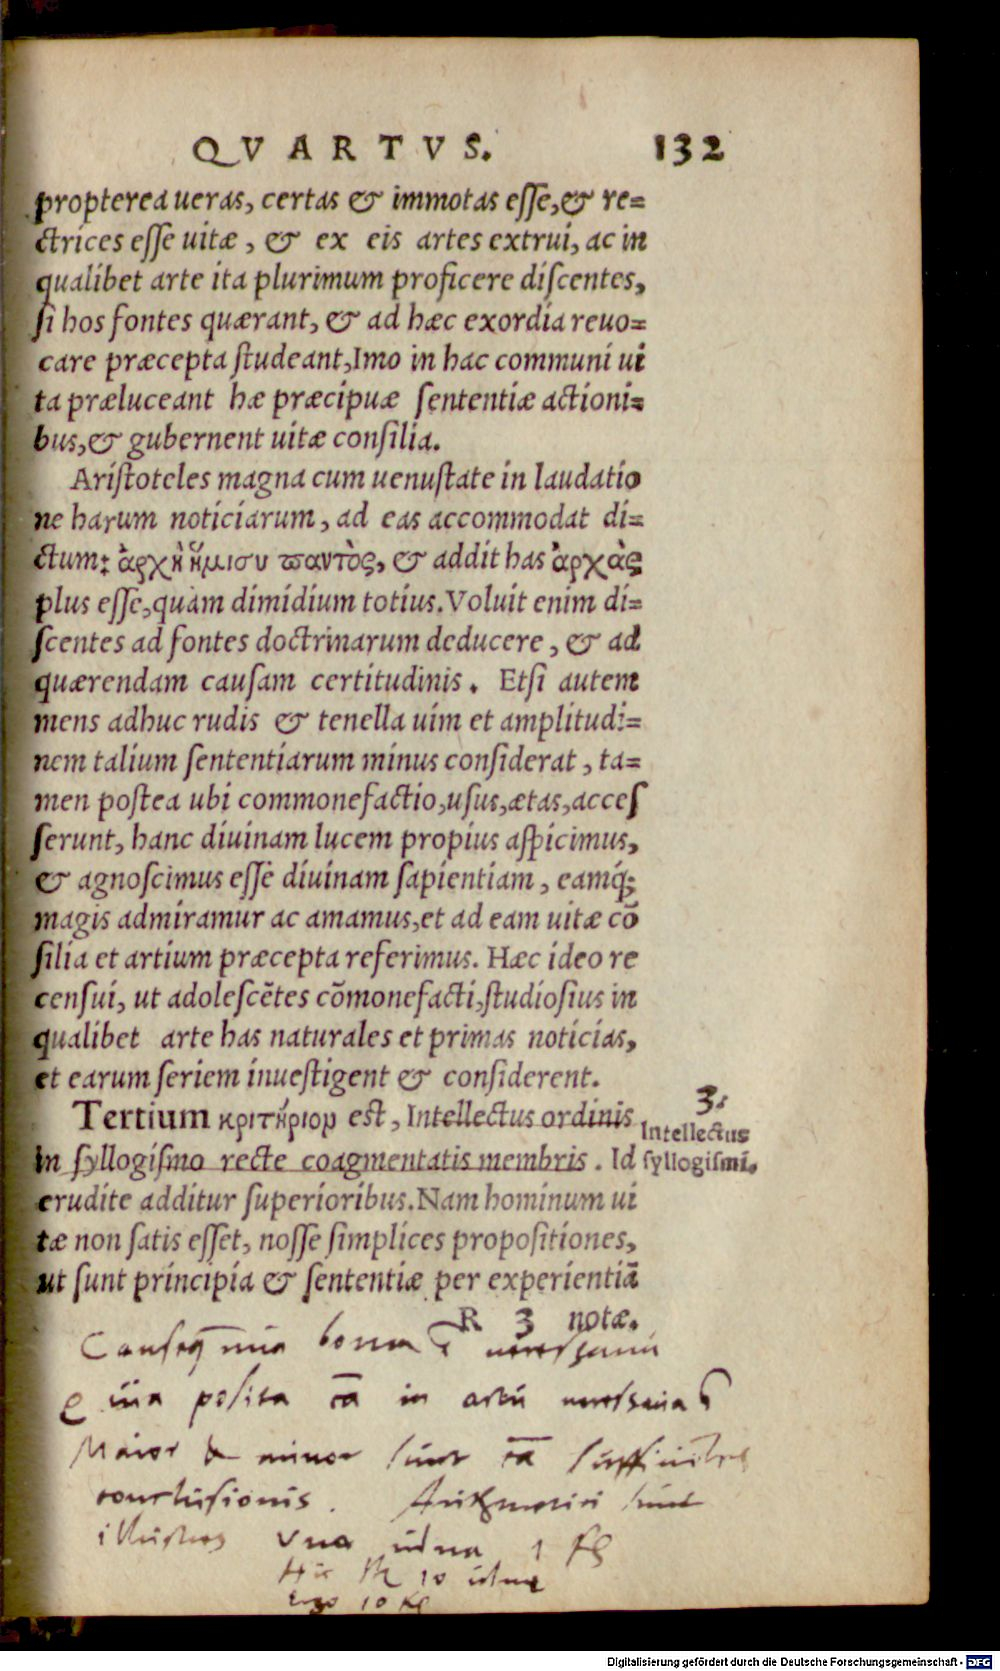 QVARTVS. 132
proptereа ueras, certas & immotas esse, & re=
ctrices esse uitæ, & ex eis artes extrui, ac in
qualibet arte ita plurimum proficere discentes,
si hos fontes quærant, & ad hæc exordia reuo=
care præcepta studeant, Imo in hac communi ui
ta præluceant hæ præcipuæ sententiæ actioni=
bus, & gubernent uitæ consilia.
Aristoteles magna cum uenustate in laudatio
ne harum noticiarum, ad eas accommodat di=
ctum: ἀρχὴ ἥμισυ παντὸς, & addit has ἀρχὰς
plus esse, quàm dimidium totius. Voluit enim di=
scentes ad fontes doctrinarum deducere, & ad
quærendam causam certitudinis. Etsi autem
mens adhuc rudis & tenella uim et amplitudi=
nem talium sententiarum minus considerat, ta=
men postea ubi commonefactio, usus, ætas, acces
serunt, hanc diuinam lucem propius aspicimus,
& agnoscimus esse diuinam sapientiam, eamq́;
magis admiramur ac amamus, et ad eam uitæ cō
silia et artium præcepta referimus. Hæc ideo re
censui, ut adolescētes cōmonefacti, studiosius in
qualibet arte has naturales et primas noticias,
et earum seriem inuestigent & considerent.
Tertium κριτήριον est, Intellectus ordinis
in syllogismo recte coagmentatis membris. Id
erudite additur superioribus. Nam hominum ui
tæ non satis esset, nosse simplices propositiones,
ut sunt principia & sententiæ per experientiā
R 3 notæ.
3.
Intellectus
syllogismi.
bona
posita in
Maior & minor sunt
conclusionis. sunt
Vna 1
10
Ergo 10
Digitalisierung gefördert durch die Deutsche Forschungsgemeinschaft - DFG